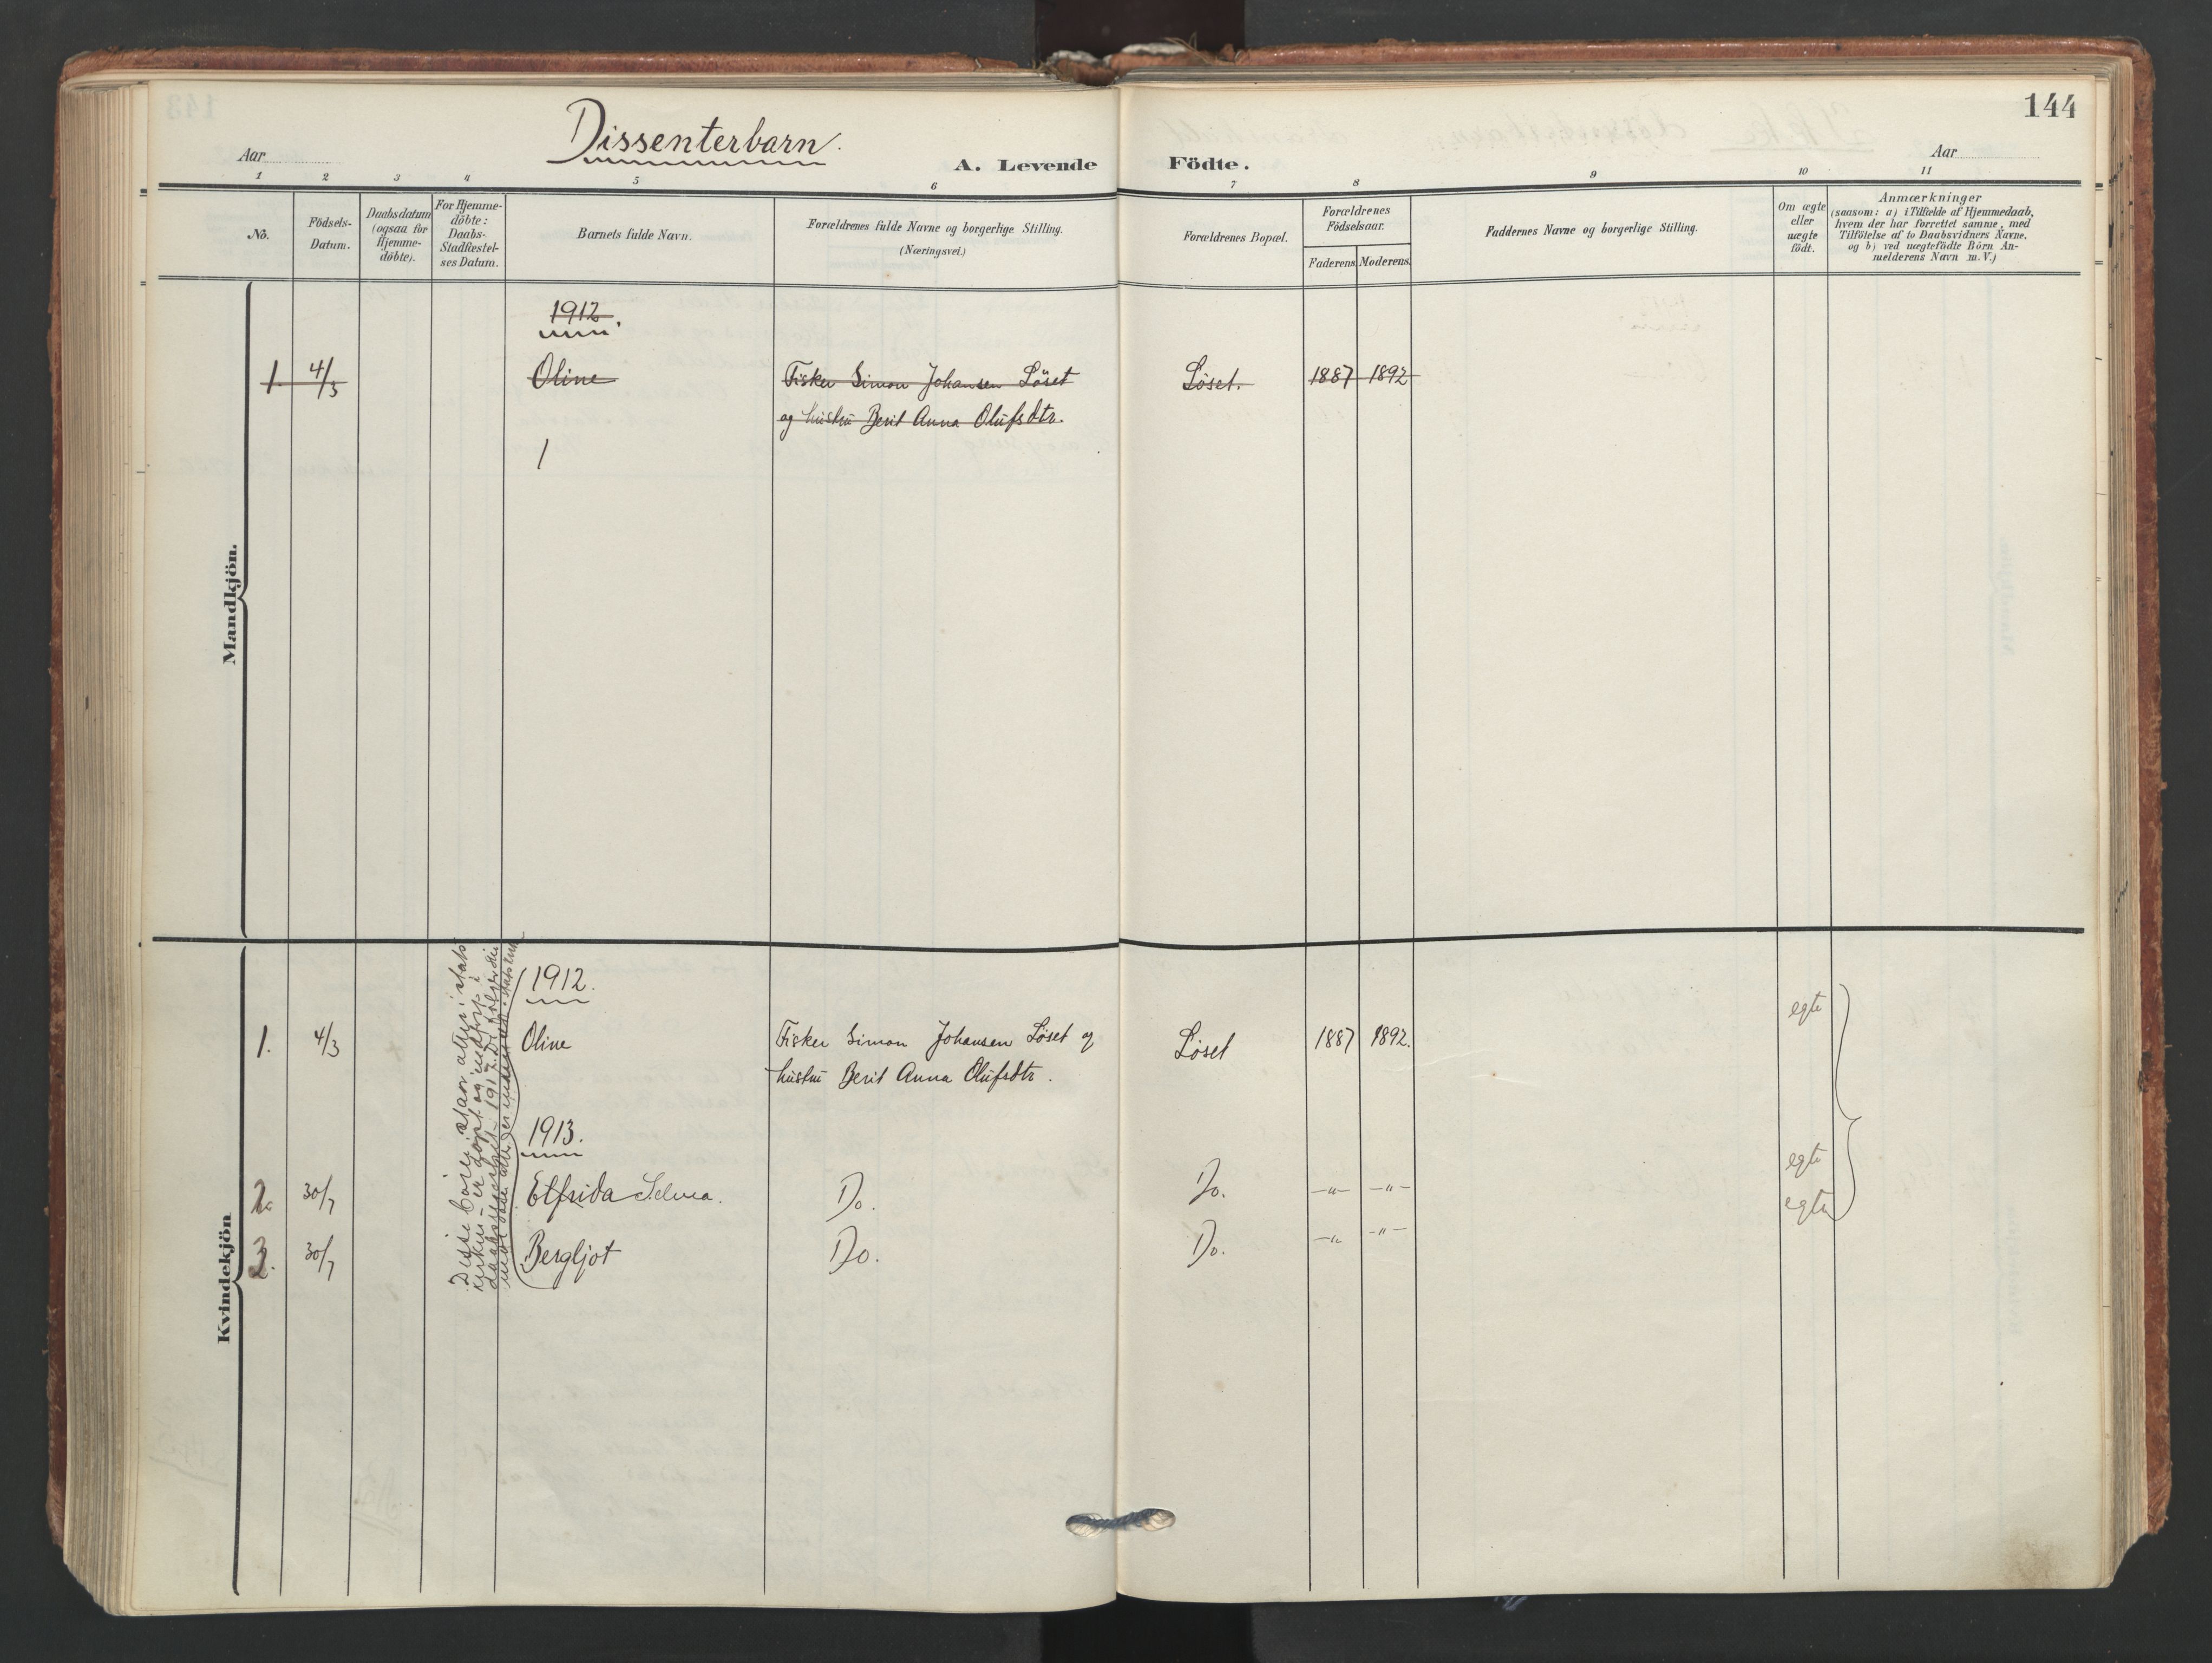 144
Dissenterbarn.
Aar
A. Levende Födte.
Aar
1 2 3 4 5 6 7 8 9 10 11
No.
Födsels-
Datum.
Daabsdatum
(ogsaa for
Hjemme-
döbte).
For Hjemme-
döbte:
Daabs-
Stadfæstel-
ses Datum.
Barnets fulde Navn.
Forældrenes fulde Navne og borgerlige Stilling.
(Næringsvei.)
Forældrenes Bopæl.
Forældrenes
Födselsaar.
Faderens. Moderens.
Faddernes Navne og borgerlige Stilling.
Om ægte
eller
uægte
födt.
Anmærkninger
(saasom: a) i Tilfælde af Hjemmedaab,
hvem der har forrettet samme, med
Tilföielse af to Daabsvidners Navne,
og b) ved uægtefödte Börn An-
melderens Navn m. V.)
Mandkjön.
1912.
1. 4/3 Oline Fisker Simon Johansen Löset Löset. 1887 1892
og hustru Berit Anna Olufsdtr.
1
Kvindekjön
1912.
egte
1. 4/3 Oline Fisker Simon Johansen Löset og Löset 1887 1892.
hustru Berit Anna Olufsdtr.
1913.
egte
2. 30/7 Elfrida Selma. Do. Do. -"- -"-
egte
3. 30/7 Bergljot Do. Do. -"- -"-
Disse barn staar atter i stats
kirken - er döpt og indfört i